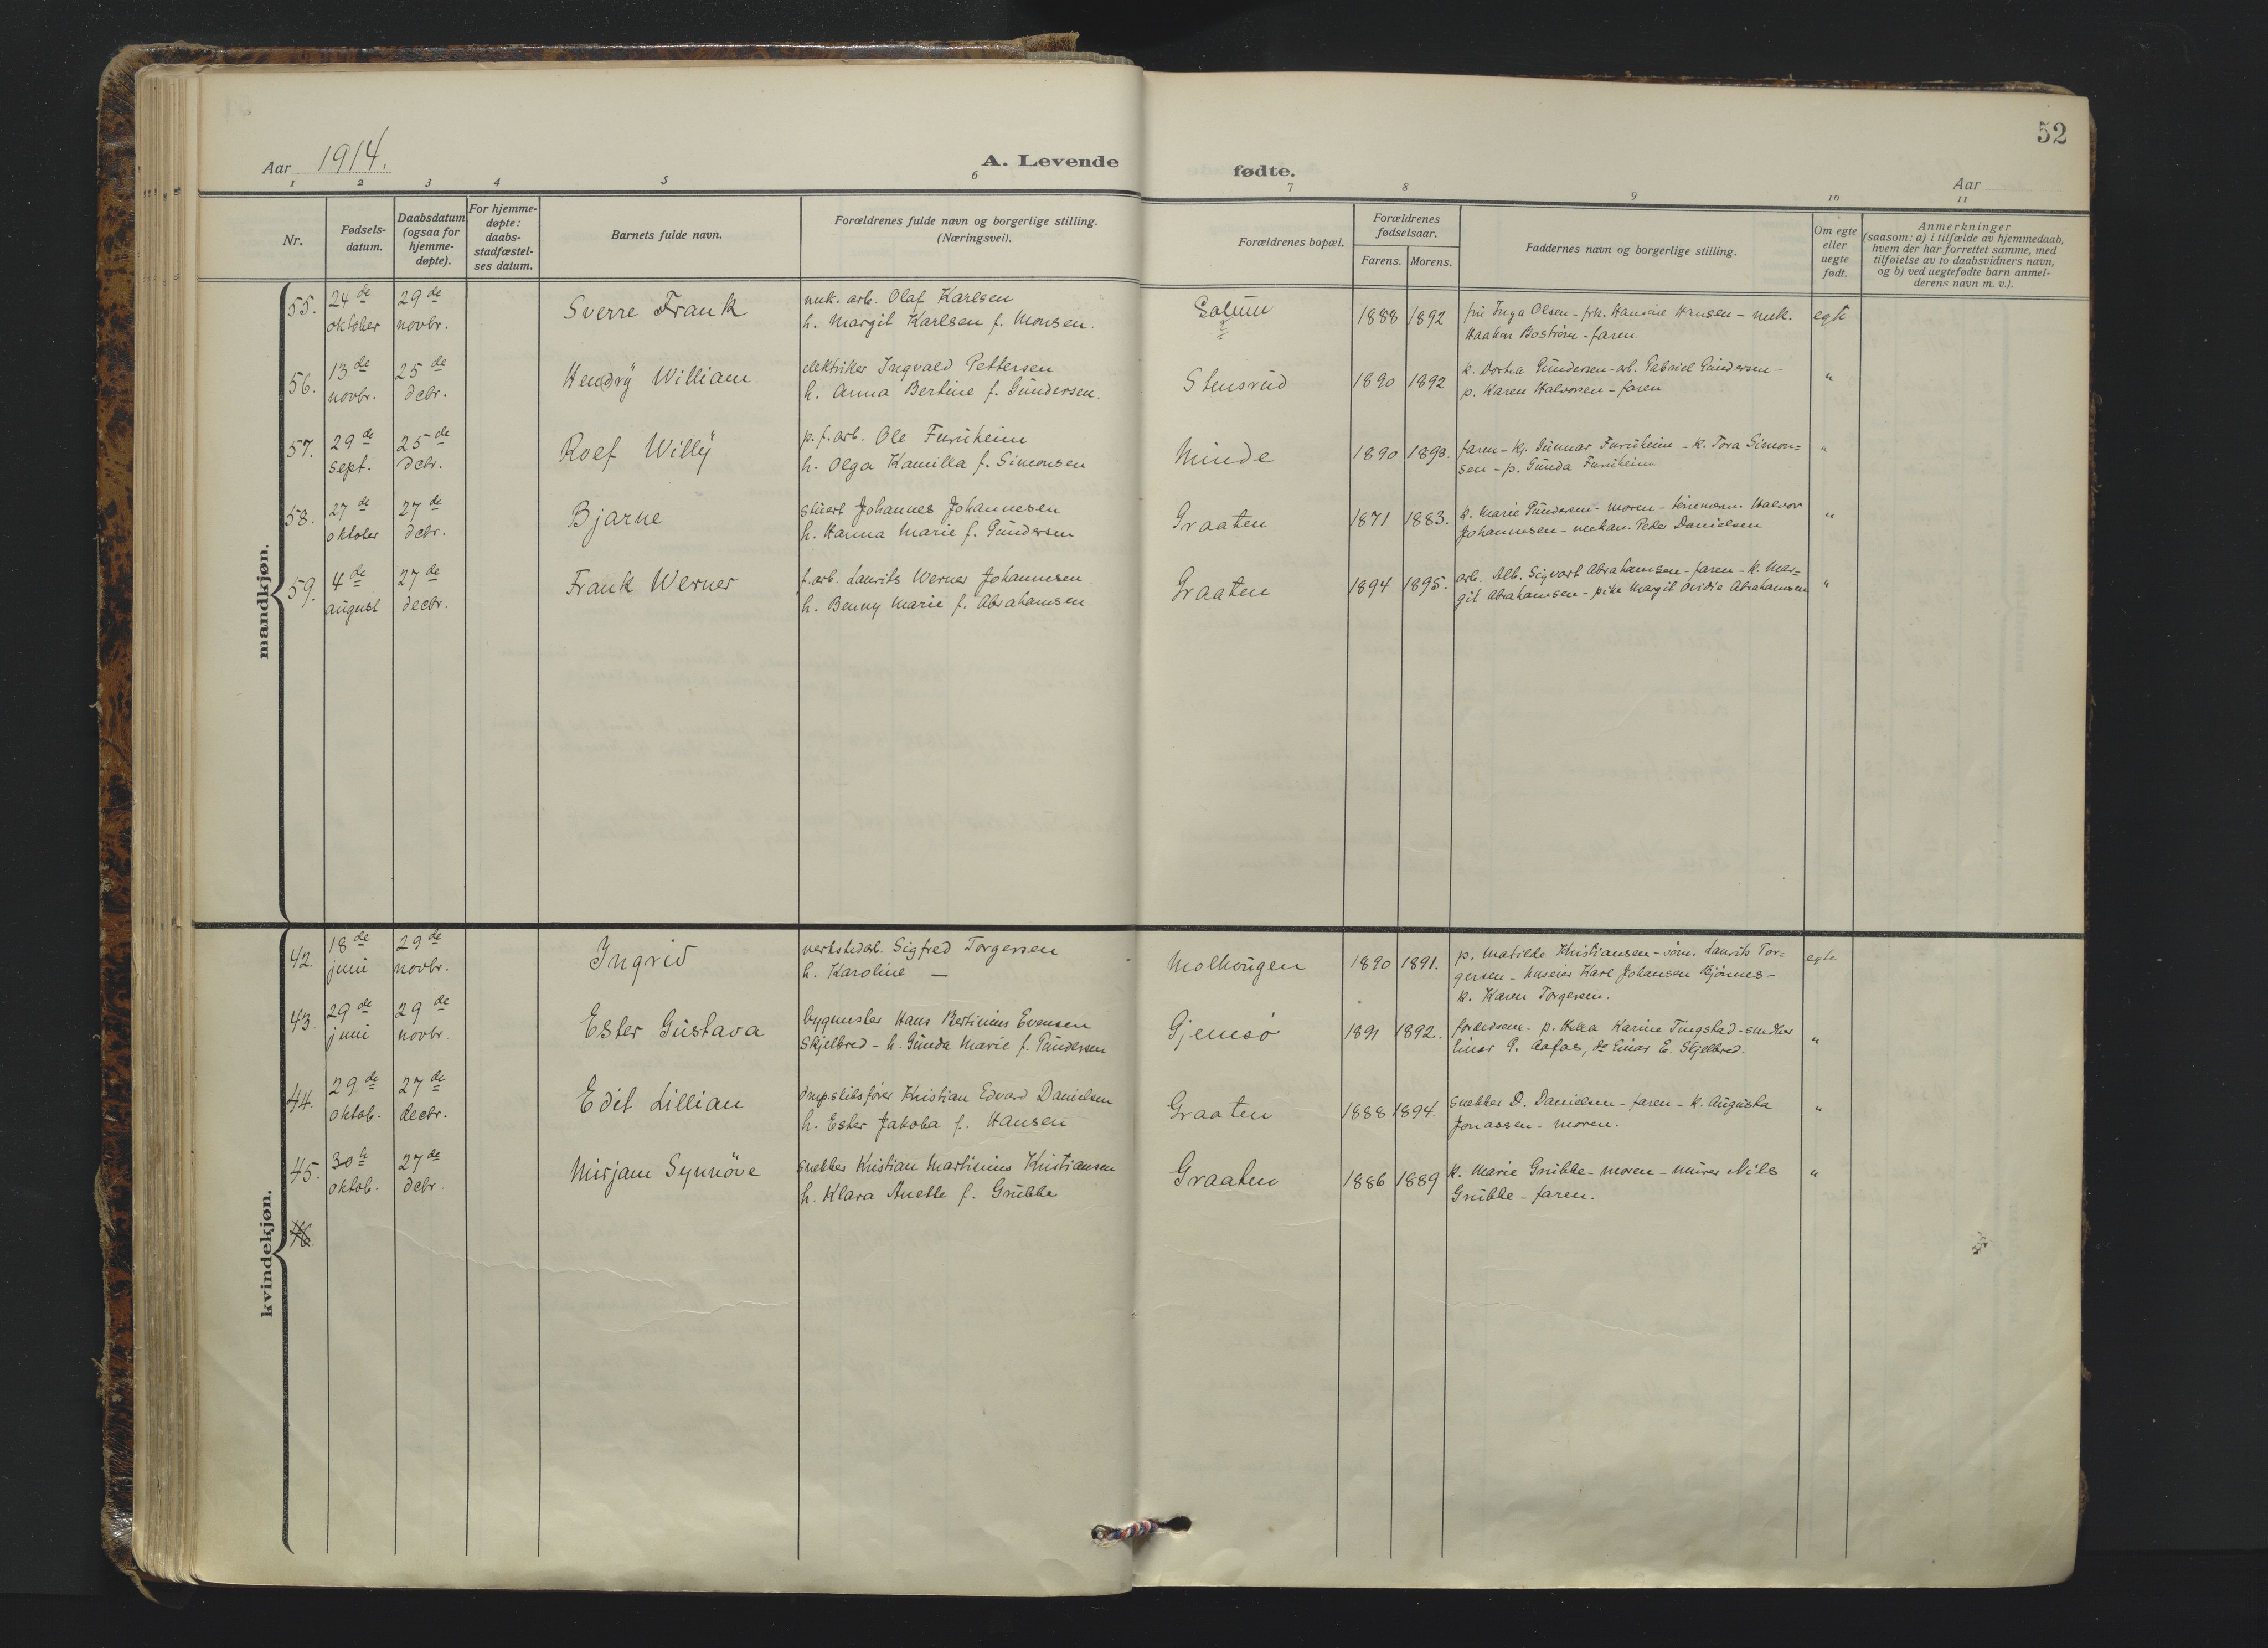 52
Aar 1914.
A. Levende
fødte.
Aar
1 2 3 4 5 6 7 8 9 10 11
Nr.
Fødsels-
datum.
Daabsdatum
(ogsaa for
hjemme-
døpte).
For hjemme-
døpte:
daabs-
stadfæstel-
ses datum.
Barnets fulde navn.
Forældrenes fulde navn og borgerlige stilling.
(Næringsvei).
Forældrenes bopæl.
Forældrenes
fødselsaar.
Farens. Morens.
Faddernes navn og borgerlige stilling.
Om egte
eller
uegte
født.
Anmerkninger
(saasom: a) i tilfælde av hjemmedaab,
hvem der har forrettet samme, med
tilføielse av to daabsvidners navn,
og b) ved uegtefødte barn anmel-
derens navn m. v.).
mandkjøn.
55. 24de 29de Sverre Frank mek. arb. Olaf Karlsen Solum 1888 1892 fru Inga Olsen - frk. Hansine Hansen - mek. egte
oktober novbr. h. Margit Karlsen f. Monsen. Haakon Boström - faren.
56. 13de 25de Hendrÿ William elektriker Ingvald Pettersen Stensrud 1890 1892 k. Dorthea Gundersen - arb. Gabriel Gundersen - "
novbr. decbr. h. Anna Bertine f. Gundersen. p. Karen Halvorsen - faren
57. 29de 25de Rolf Willÿ p. f. arb. Ole Furuheim Minde 1890 1893. faren - Kj. Gunnar Furuheim - k. Tora Simon= "
sept. decbr. h. Olga Kamilla f. Simonsen sen - p. Gunda Furuheim
58. 27de 27de Bjarne stuert Johannes Johannesen Graaten 1871 1883. k. Marie Gundersen - moren - Halvor "
oktober decbr. h. Hanna Marie f. Gundersen Johannesen - mekan. Peder Danielsen
59. 4de 27de Frank Werner f. arb. Laurits Werner Johannesen Graaten 1894 1895. arb. Alb. Sigvart Abrahamsen - faren - k. Mar= "
august decbr. h. Benny Marie f. Abrahamsen git Abrahamsen - pike Margit Ovidie Abrahamsen
kvindekjøn.
42. 18de 29de Ingrid verkstedarb. Sigfred Torgersen Molhougen 1890 1891. p. Matilde Kristiansen - søm. Laurits Tor= egte
juni novbr. h. Karoline — gersen - huseier Karl Johansen Bjönnes -
k. Karen Torgersen.
43. 29de 29de Ester Gustava bygmester Hans Bertinius Evensen Gjemsö 1891 1892. forældrene - p. Helga Karine Tingstad - snedker "
juni novbr. Skjelbred - h. Gunda Marie f. Gundersen Einar P. Aafos, do Einar E. Skjelbred.
44. 29de 27de Edit Lillian dmp.skibsfører Kristian Edvard Danielsen Graaten 1888 1894. snekker D. Danielsen - faren - k. Augusta "
oktob. decbr. h. Ester Jakoba f. Hansen Jonassen - moren.
45. 30te 27de Mirjam Synnöve snekker Kristian Martinius Kristiansen Graaten 1886 1889 k. Marie Grubbe - moren - murer Nils "
oktob. decbr. h. Klara Anette f. Grubbe Grubbe - faren.
46.